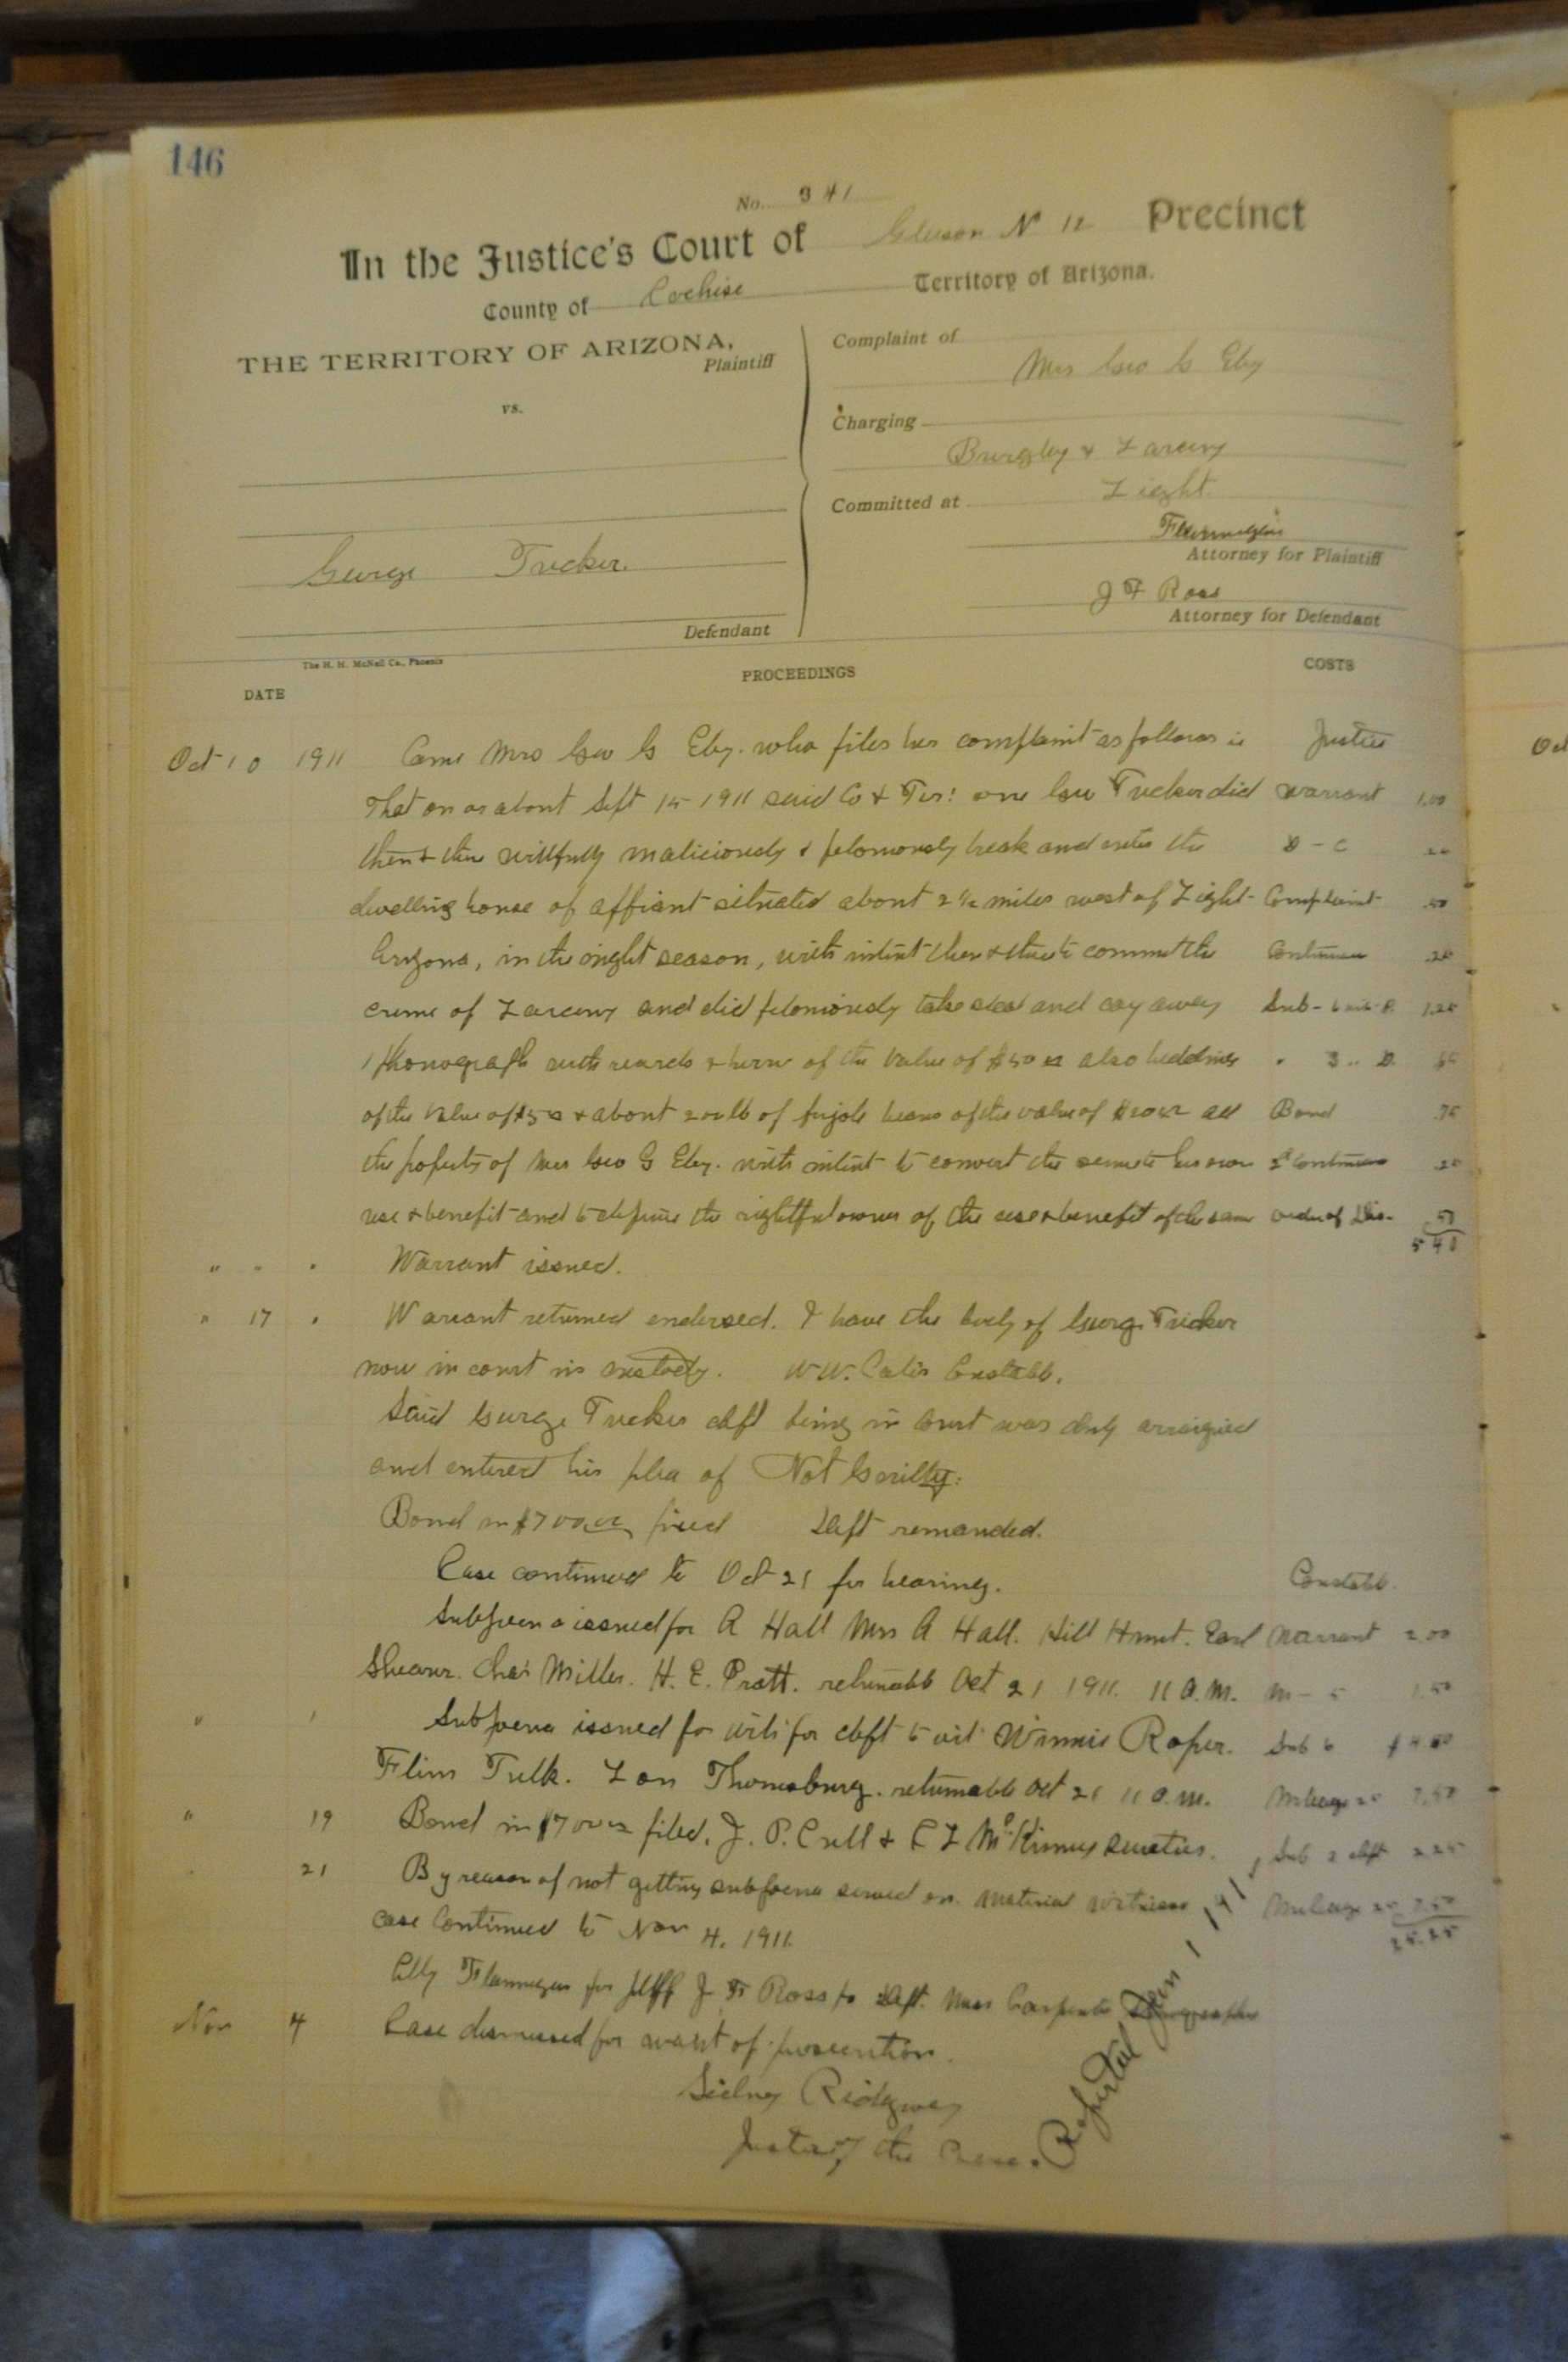 146
No. 341
In the Justice's Court of Gleeson No 12 Precinct
County of Cochise Territory of Arizona.
THE TERRITORY OF ARIZONA,
Plaintiff
vs.
George Tucker.
Defendant
Complaint of
Mrs Geo G Eby
Charging
Burgley & Larceny
Committed at Light.
Attorney for Plaintiff
J F Ross
Attorney for Defendant
The H. H. McNeil Co., Phoenix
DATE PROCEEDINGS COSTS
Oct 10 1911 Came Mrs Geo G Eby. who files her complaint as follows Justice
That on or about Sept 15 1911 said Co & Ter: one Geo Tucker did Warrant 1.00
then & there willfully maliciously & feloniously break and enter the D - C
dwelling house of affiant situated about 2 1/2 miles west of Light Complaint .50
Arizona, in the night season, with intent then & there to commit the Continuance
crime of Larceny and did feloniously take steal and cay away Sub- 1.25
1 phonograph with records & horn of the value of $50 00 also beddings " 3 " D.
of the value of $5 00 & about 200 lb of frijole beans of the value of all Bond .75
the property of Mrs Geo G Eby. with intent to convert the same to his own 2d Continuance
use & benefit and to deprive the rightful owner of the use & benefit of the same order of Dis-
540
" " " Warrant issued.
" 17 " Warrant returned endorsed. I have the body of George Tucker
now in court in custody. W.W. Constable.
Said George Tucker deft being in Court was duly arraigned
and entered his plea of Not Guilty:
Bond in $700.00 fixed Deft remanded.
Case continued to Oct 21 for hearing. Constable.
Subpoena issued for A Hall Mrs A Hall. Hill Hunt. Earl Warrant 2.00
Shearer. Chas Miller. H. E. Pratt. returnable Oct 21 1911. 11 A.M. M - 5 1.50
Subpoena issued for wits for deft to wit Winnie Roper. Sub 6
Flim Tulk. Lon Thomsburg. returnable Oct 21 11 A.M. Mileage 25 7.50
" 19 Bond in $700 00 filed. J. P. & C L McKinney sureties. Sub 3 deft 2.25
" 21 By reason of not getting subpoena served on material witness Mileage 25 7.50
case Continued to Nov 4, 1911. 25.25
Flannegan for pltff J F Ross for Deft. Miss Carpenter Stenographer
Nov 4 Case dismissed for want of prosecution.
Sidney Ridgway
Justice of the Peace.
Reported Jan 1 1911